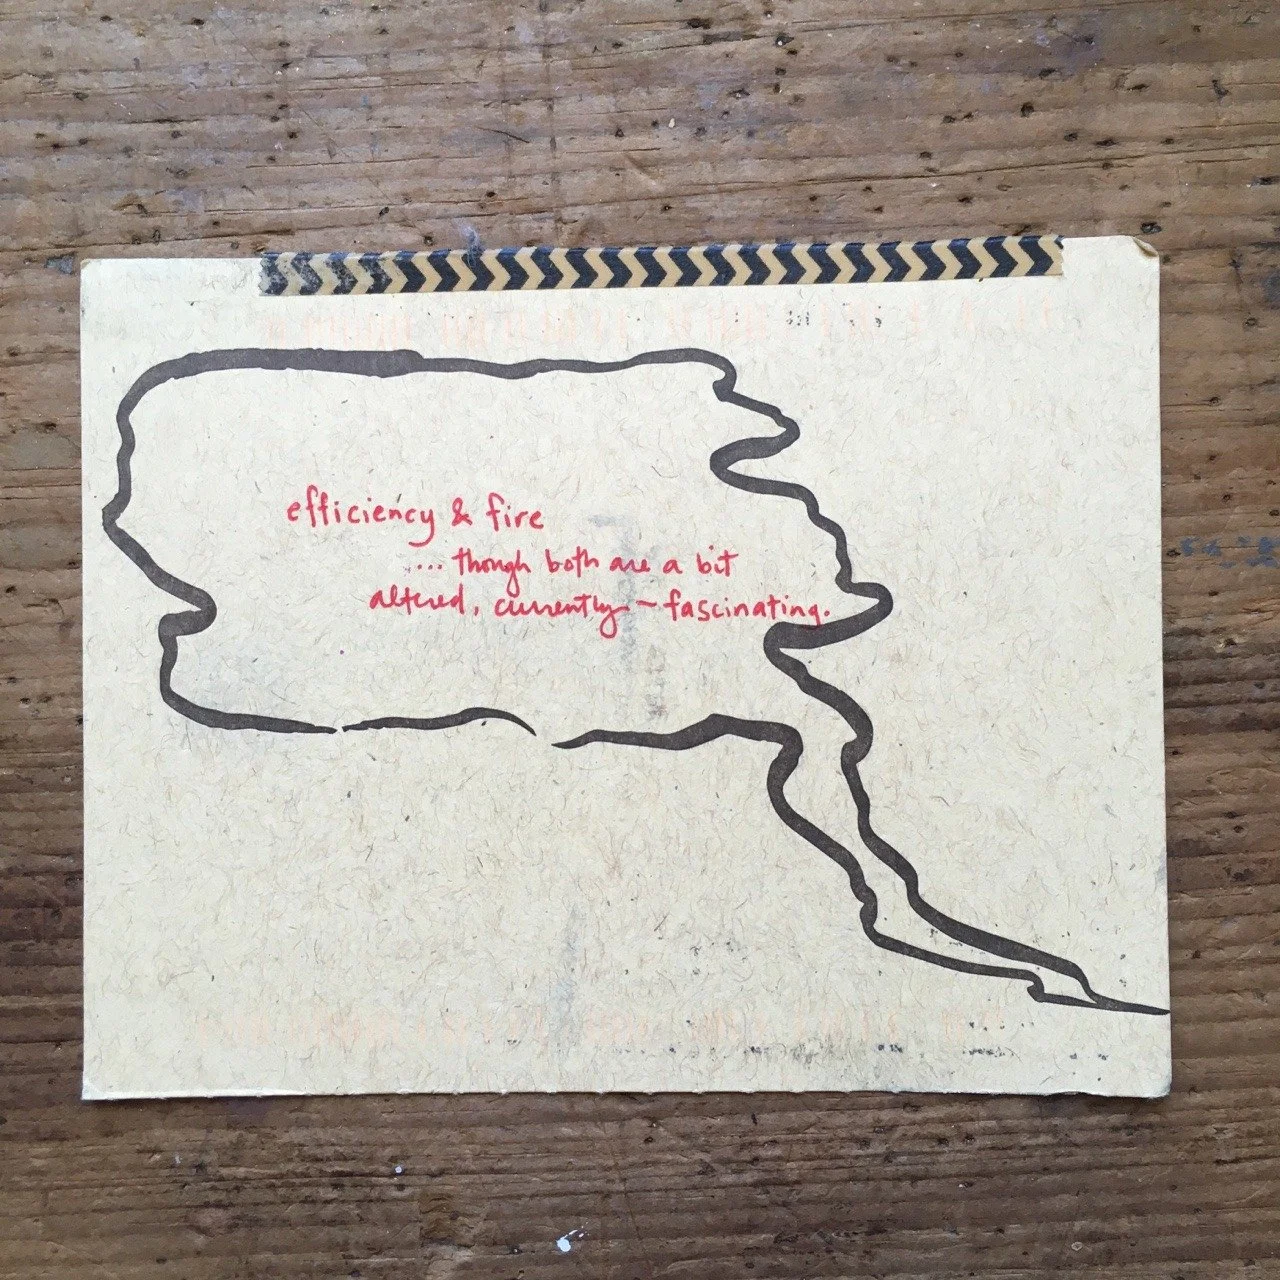 efficiency & fire
... though both are a bit
altered, currently – fascinating.